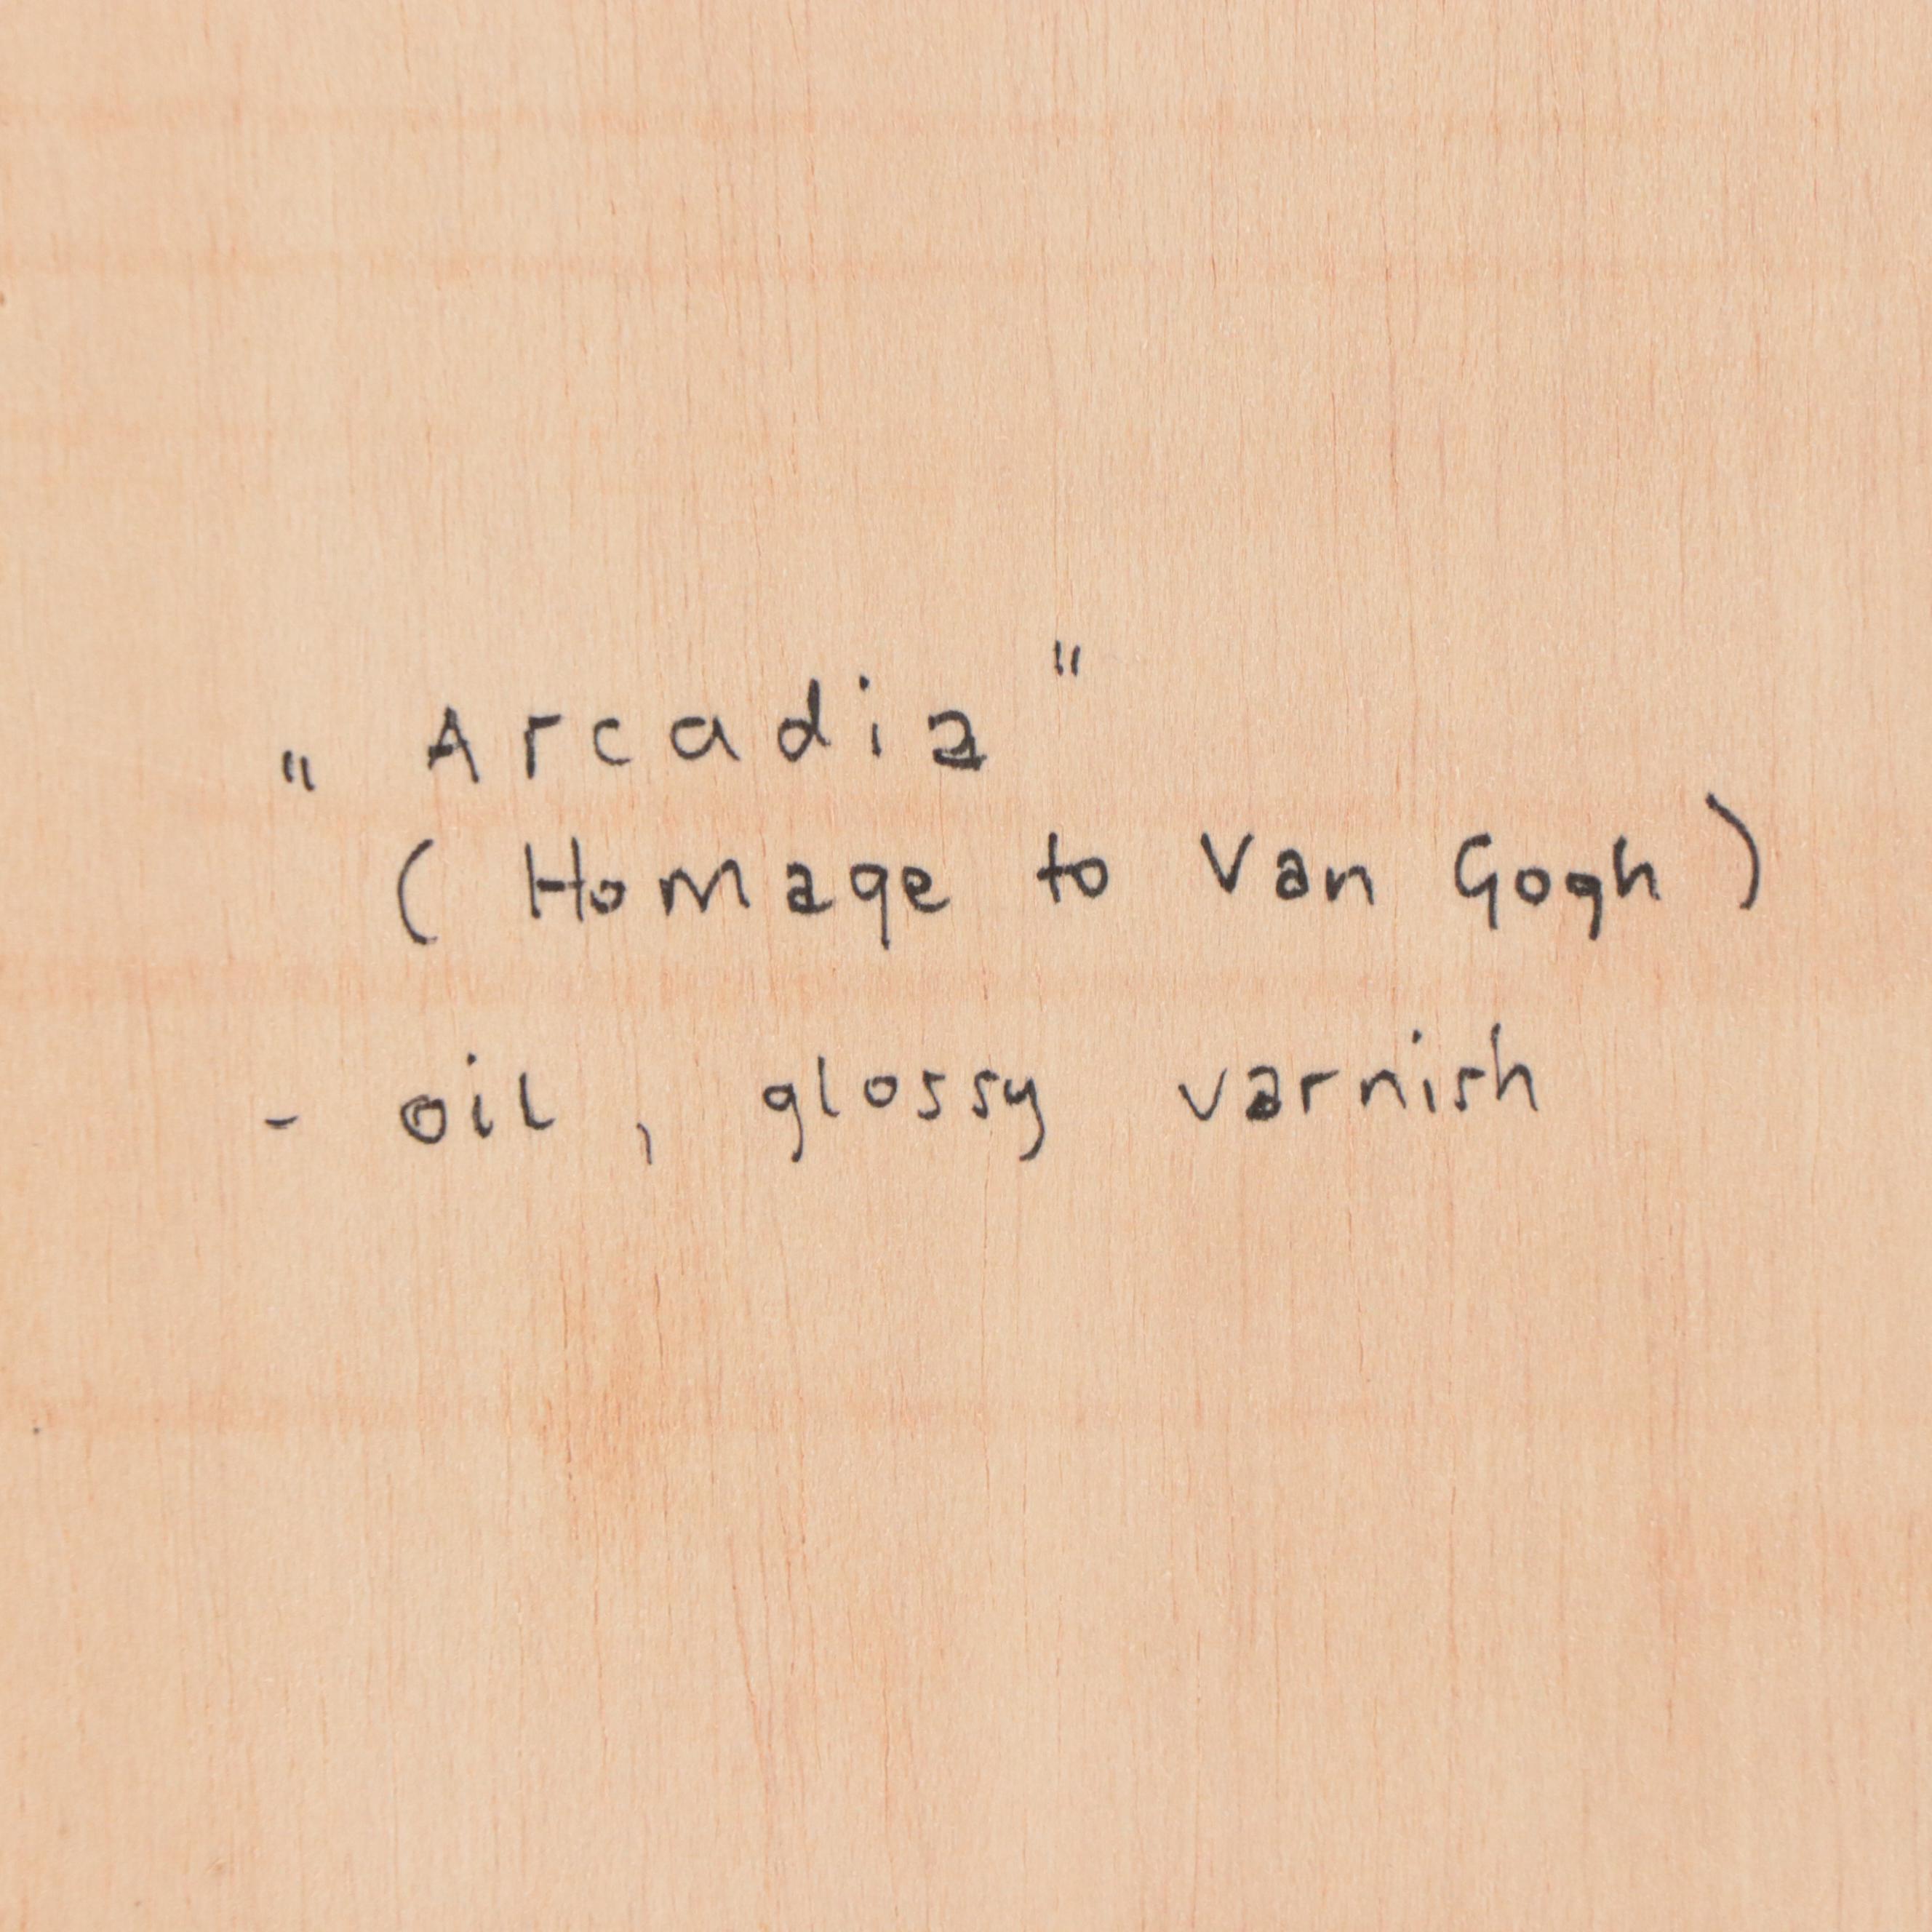 „ Arcadia "
( Homage to Van Gogh )
- oil , glossy varnish